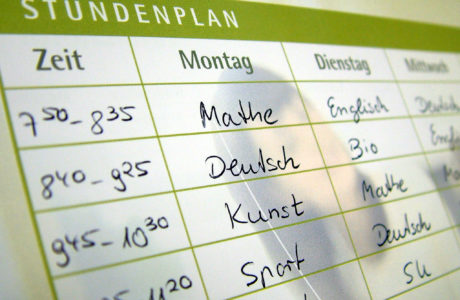 STUNDENPLAN
Zeit Montag Dienstag Mittwoch
7⁵⁰-8³⁵ Mathe Englisch Deutsch
8⁴⁰-9²⁵ Deutsch Bio
9⁴⁵-10³⁰ Kunst Mathe
11²⁰ Sport Deutsch
SU